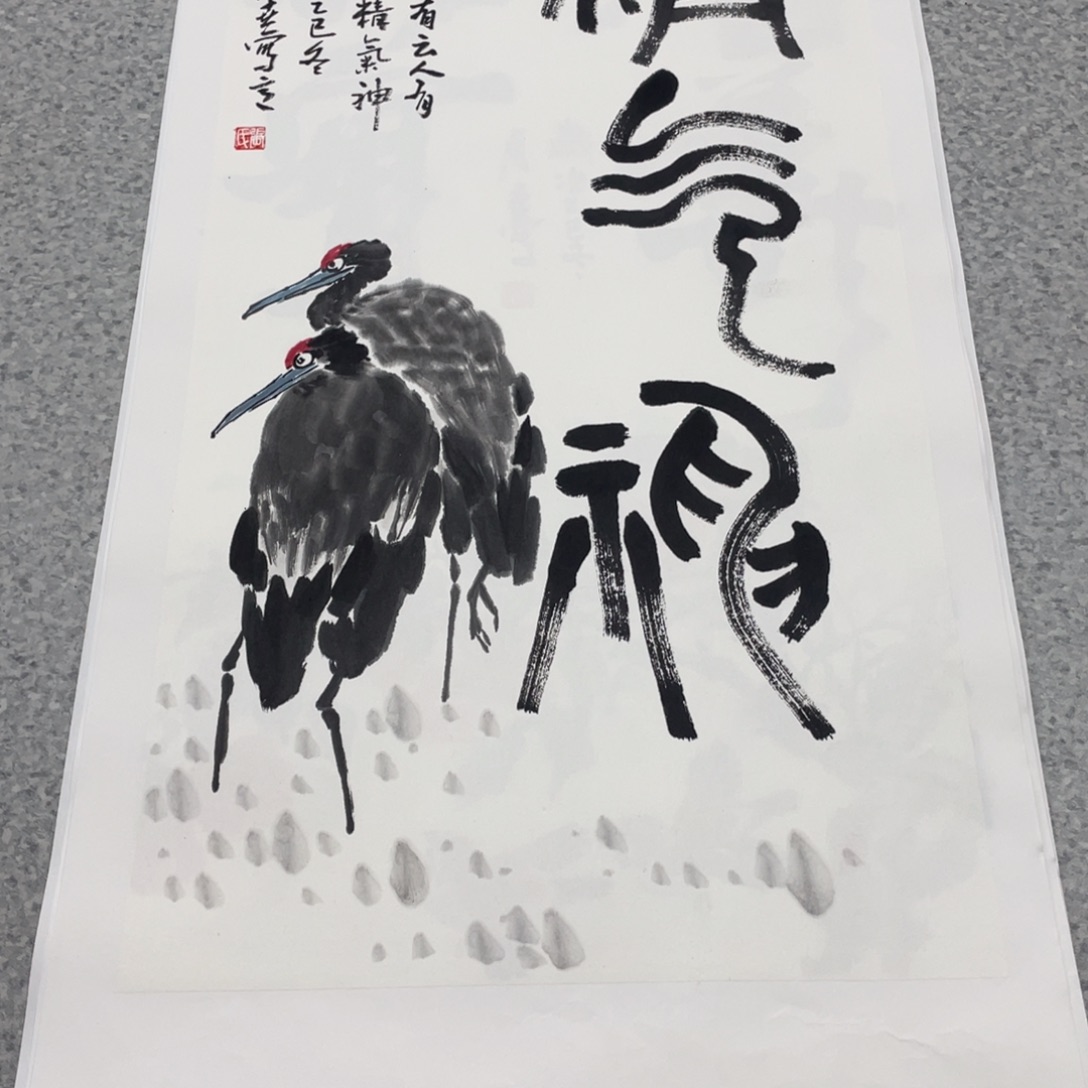 精气神
有云人有
精氣神
乙巳冬
寫意